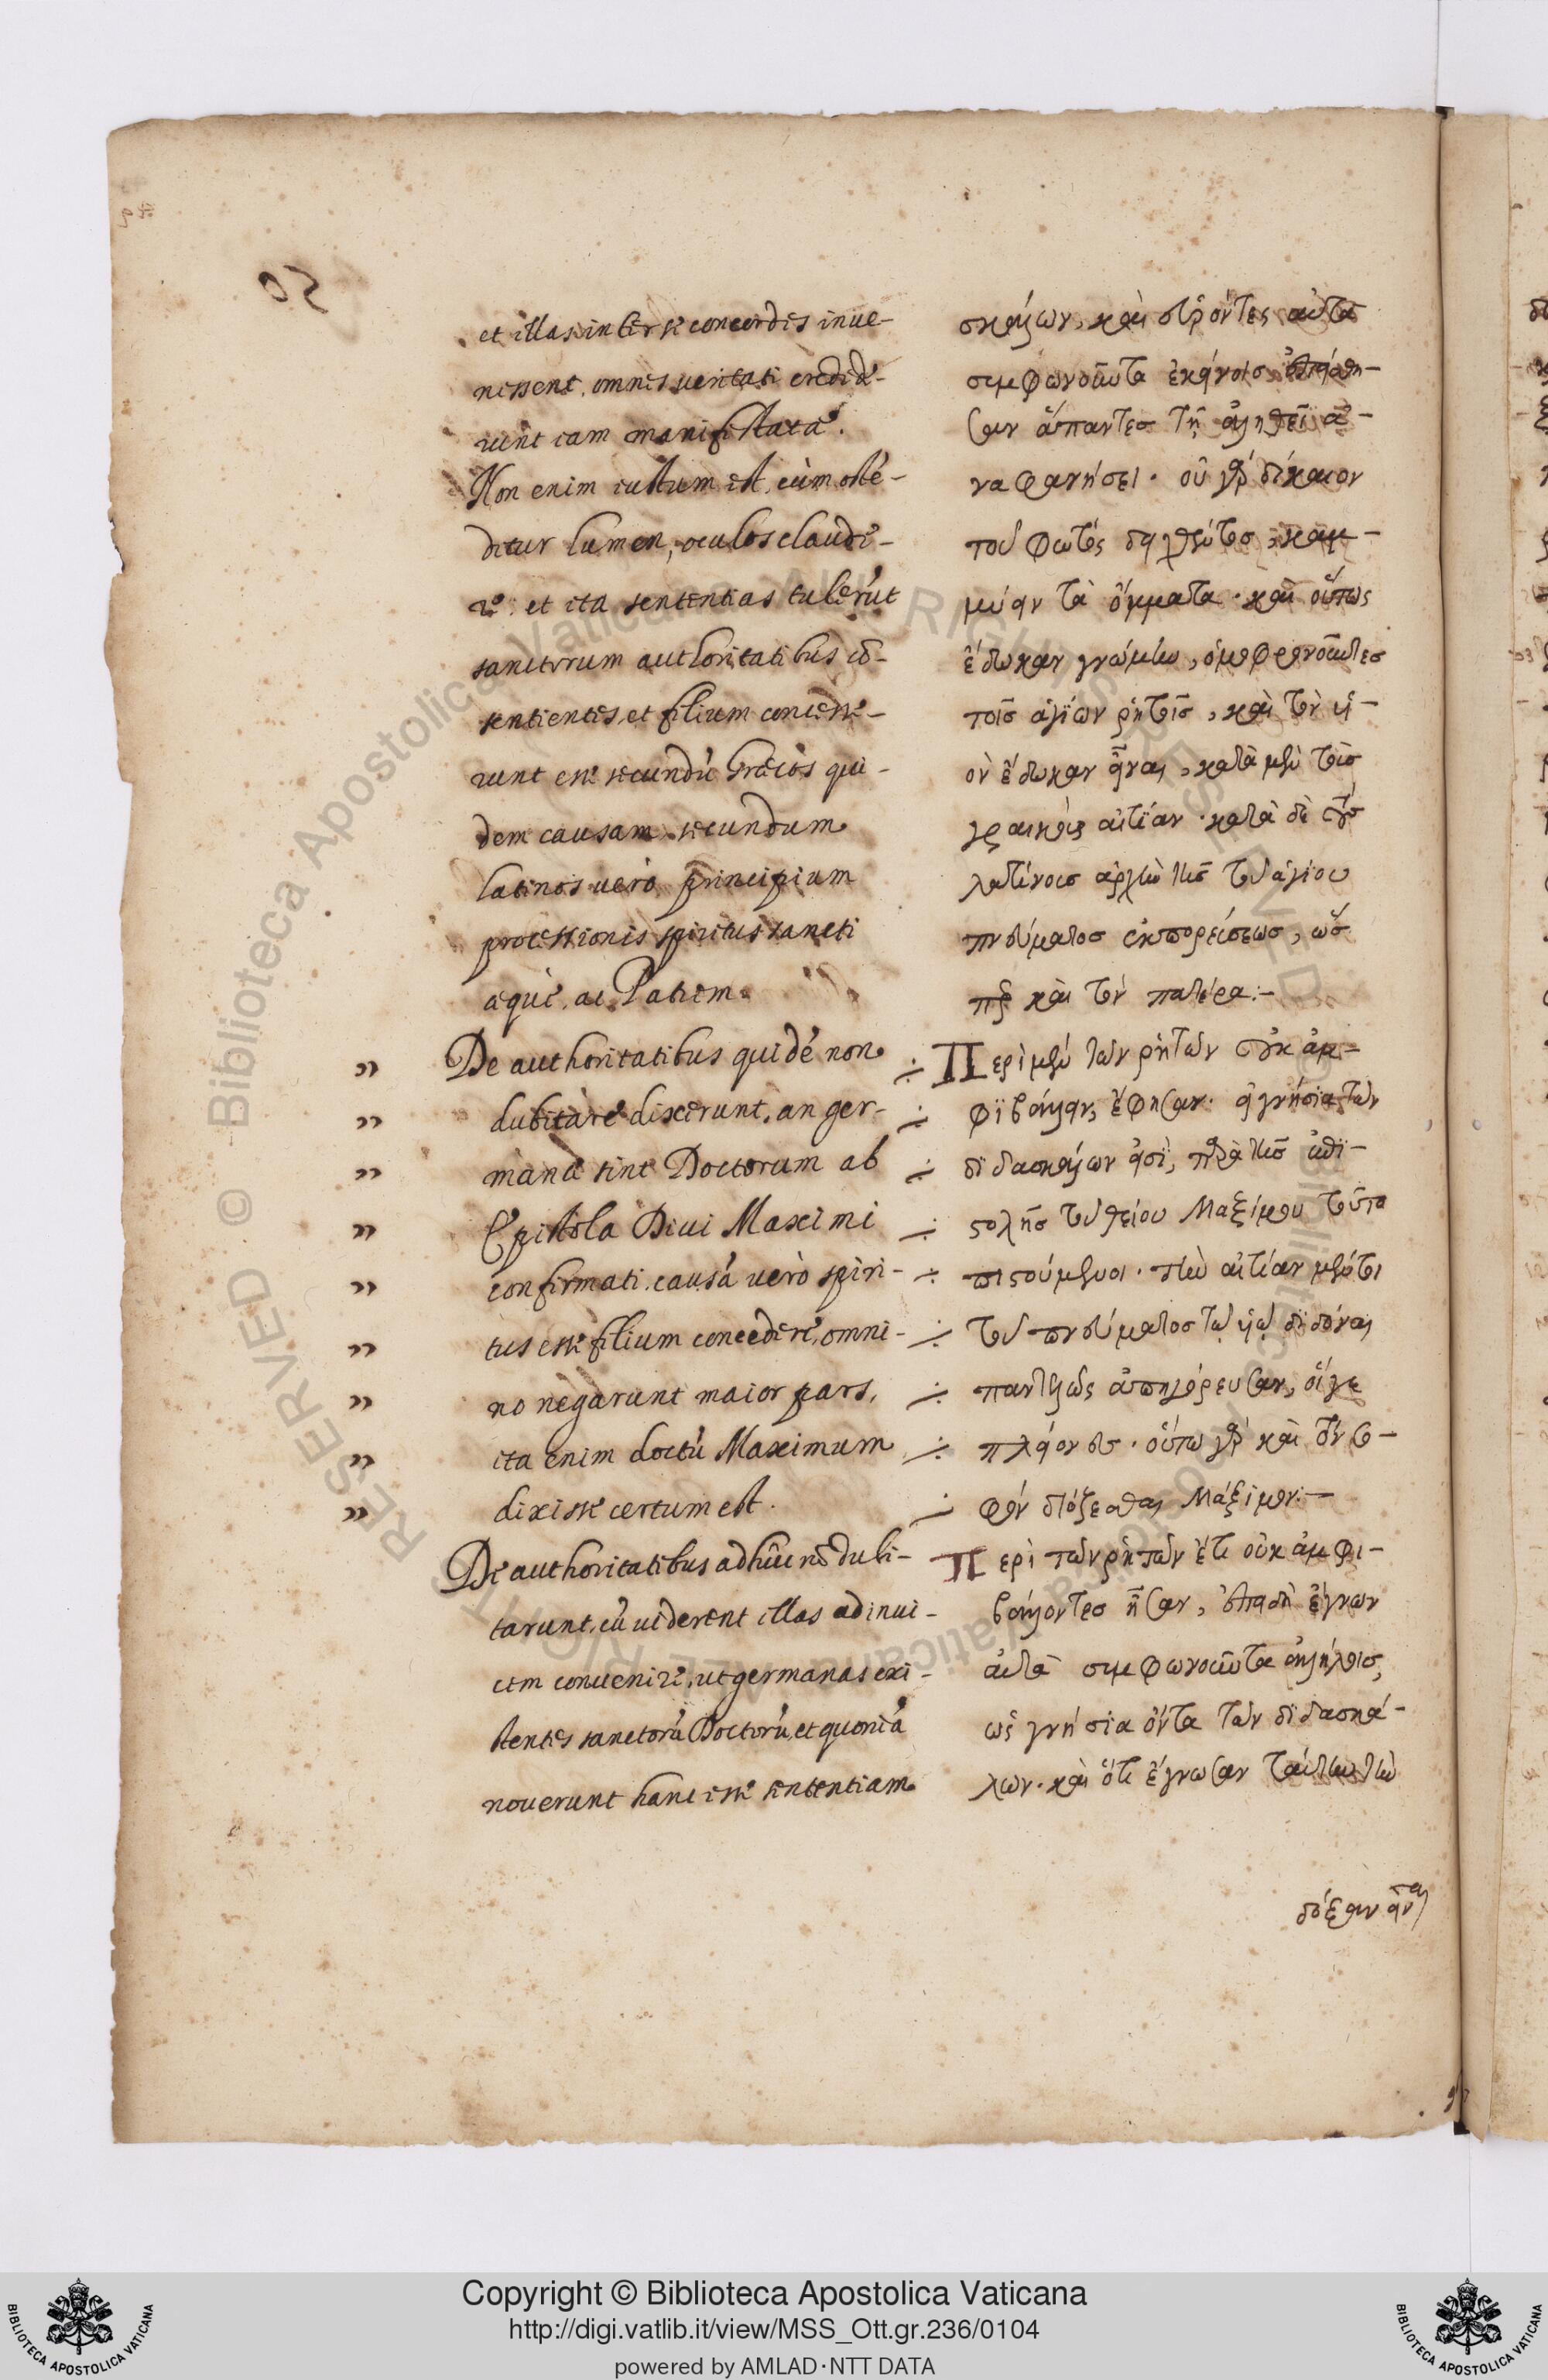 50
et illas inter se concordes inue-
nissent, omnes ueritati credide-
runt iam manifestatae.
Non enim iustum est, cùm oste-
ditur lumen, oculos claude-
re: et ita sententias tulerũt
sanctorum authoritatibus cõ-
sentientes, et filium concesse-
runt esse secundũ Graecos qui-
dem causam, secundum
latinos uerò principium
processionis spiritus sancti
aequè, ac Patrem.
De authoritatibus quidẽ non
dubitare dixerunt, an ger-
manae sint Doctorum ab
Epistola Diui Maximi
confirmati. causã uerò spiri-
tus esse filium concedere, omni-
no negarunt maior pars,
ita enim doctũ Maximum
dixisse certum est.
De authoritatibus adhuc nõ dubi-
tarunt, cũ uiderent illas adinui-
cem conuenire, ut germanas exi-
stentes sanctorũ Doctorũ, et quoniã
nouerunt hanc esse sententiam
σκάλων, καὶ εὑρόντες αὐτὰ
συμφωνοῦντα ἐκείνοις, ἐπείσθη-
σαν ἅπαντες τῇ ἀληθείᾳ ἀ-
ναφανήσει. οὐ γὰρ δίκαιον
τοῦ φωτὸς δειχθέντος, καμ-
μύειν τὰ ὄμματα. καὶ οὕτως
ἔδωκαν γνώμην, ὁμοφρονοῦντες
τοῖς ἁγίων ῥητοῖς, καὶ τὸν υἱ-
ὸν ἔδωκαν εἶναι, κατὰ μὲν τοὺς
γραικοὺς αἰτίαν. κατὰ δὲ τοὺς
λατίνους ἀρχὴν τῆς τοῦ ἁγίου
πνεύματος ἐκπορεύσεως, ὥσ
περ καὶ τὸν πατέρα:-
Περὶ μὲν τῶν ῥητῶν οὐκ ἀμ-
φιβάλλειν, ἔφησαν. εἰ γνήσια τῶν
διδασκάλων εἰσὶ, παρὰ τῆς ἐπι-
στολῆς τοῦ θείου Μαξίμου τοῦτο
πιστούμενοι. τὴν αἰτίαν μέντοι
τοῦ πνεύματος τῷ υἱῷ διδόναι
παντελῶς ἀπηγόρευσαν, οἵγε
πλείονες. οὕτω γὰρ καὶ τὸν σο-
φὸν διόζεσθαι Μάξιμον:-
Περὶ τῶν ῥητῶν ἔτι οὐκ ἀμφι-
βάλλοντες ἦσαν, ἐπειδὴ ἔγνων
αὐτὰ συμφωνοῦντα ἀλλήλοις,
ὡς γνήσια ὄντα τῶν διδασκά-
λων. καὶ ὅτι ἔγνωσαν ταύτην τὴν
δόξαν εἶναι
Copyright © Biblioteca Apostolica Vaticana
http://digi.vatlib.it/view/MSS_Ott.gr.236/0104
powered by AMLAD·NTT DATA